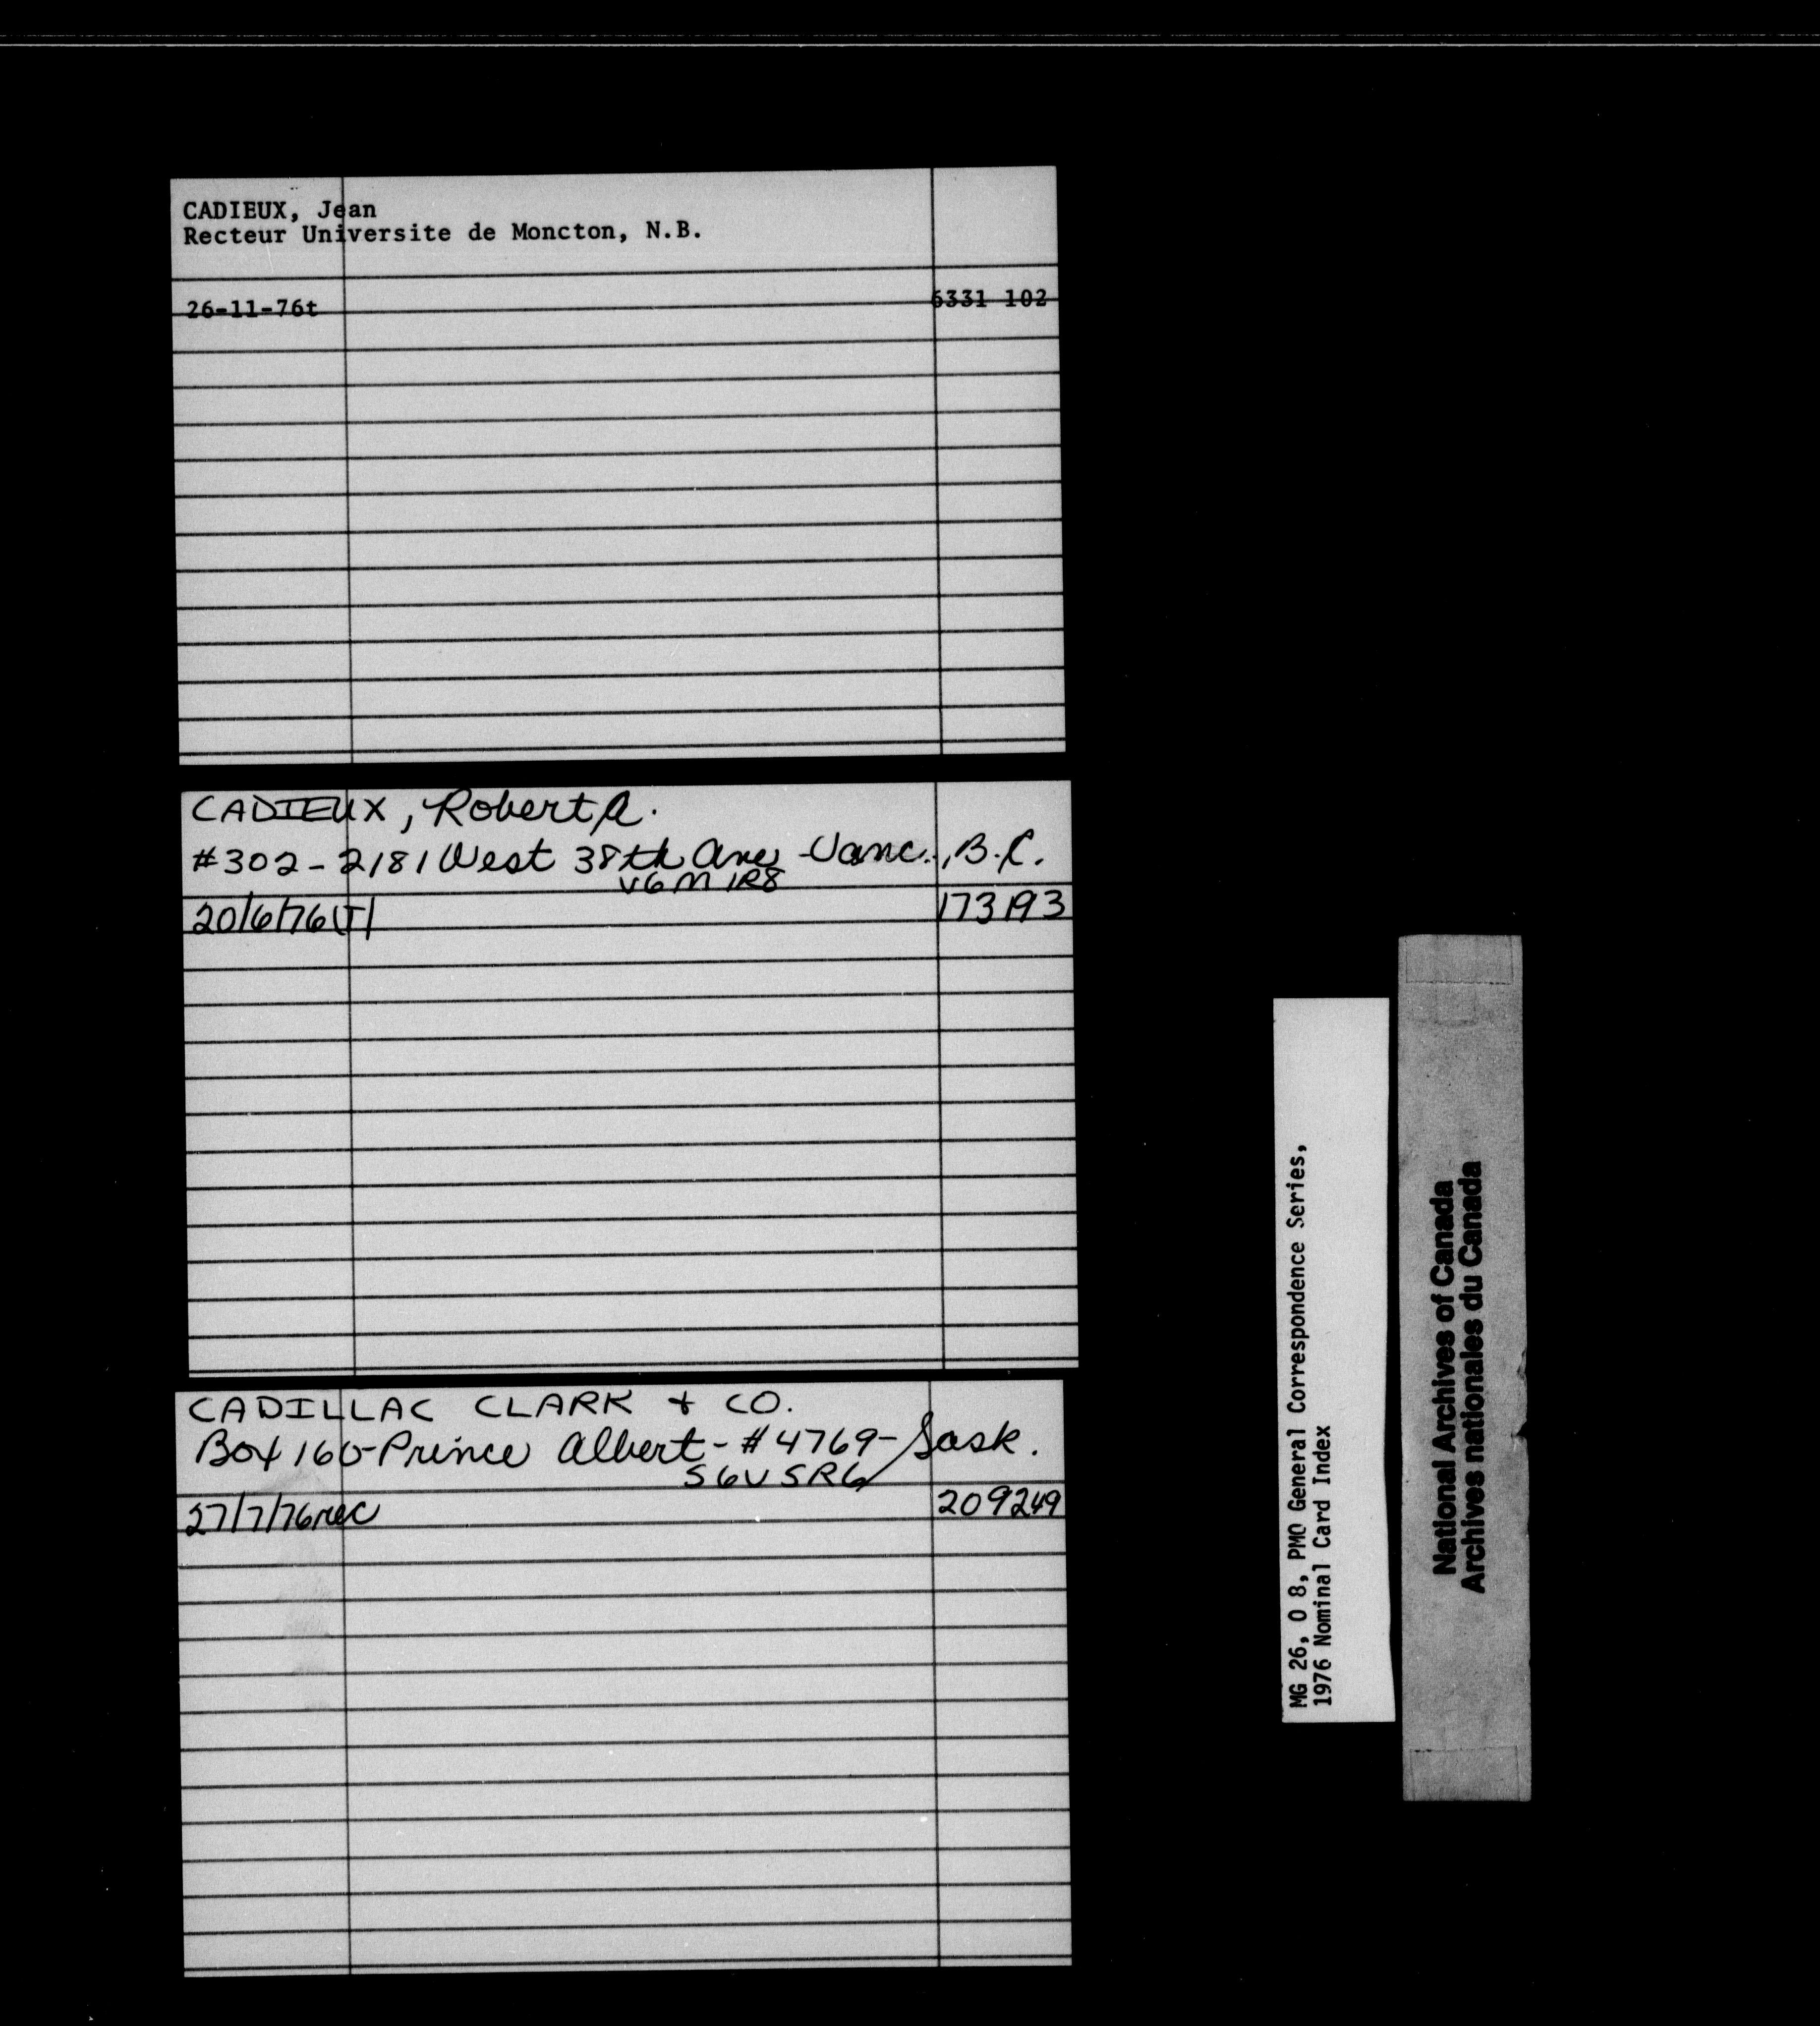 CADIEUX, Jean
Recteur Universite de Moncton, N.B.
26-11-76t 6331 102
CADIEUX, Robert A.
#302-2181 West 38th Ave Vanc., B.C.
V6M 1R8
20/6/76(T) 173193
CADILLAC CLARK + CO.
Box 160-Prince Albert-#4769-Sask.
S6V 5R6
27/7/76rec 209249
MG 26, O 8, PMO General Correspondence Series,
1976 Nominal Card Index
National Archives of Canada
Archives nationales du Canada